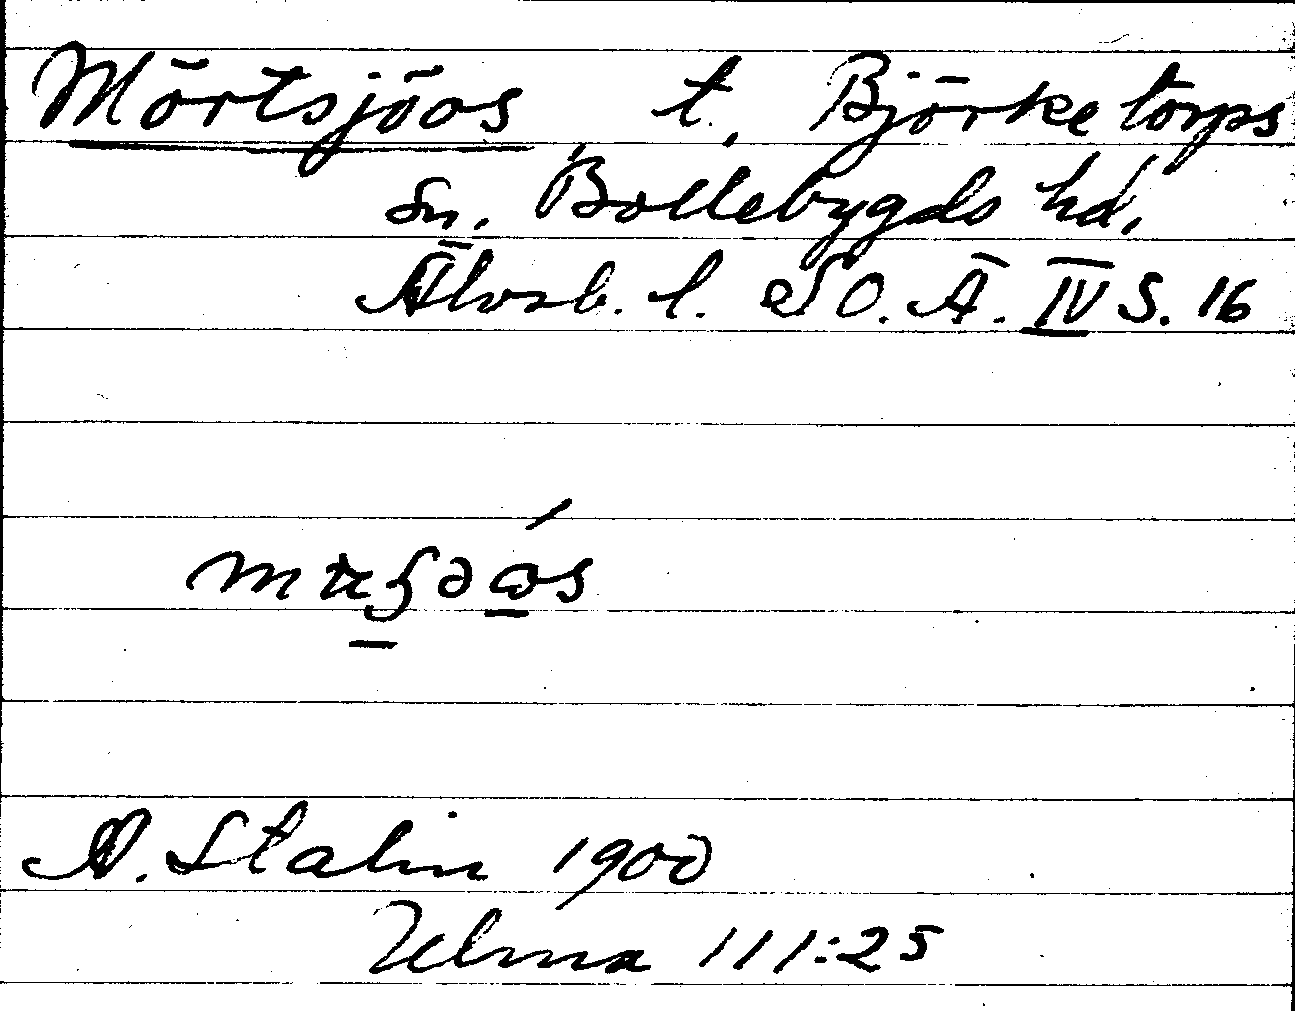 Mörtsjöos t. Björketorps
sn. Bollebygds hd.
Älvsb. l. SO. Ä. IV S. 16
A. Stalin 1900
Ulma 111:25